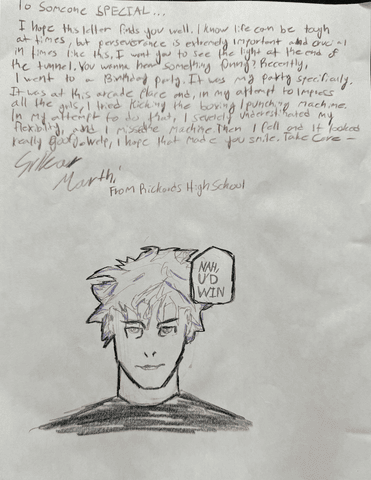 To Someone SPECIAL...
I hope this letter finds you well. I know life can be tough
at times, but perseverance is extremely important and crucial
in times like this, I want you to see the light at the end of
the tunnel. You wanna hear something funny? Recently,
I went to a Birthday party. It was my party specifically.
It was at this arcade place and, in my attempt to impress
all the girls, I tried kicking the boxing/punching machine.
In my attempt to do that, I severely underestimated my
flexibility, and I missed the machine. Then I fell and it looked
really goofy. Welp, I hope that made you smile. Take care -
Marthi
From Rickards High School
NAH,
U'D
WIN